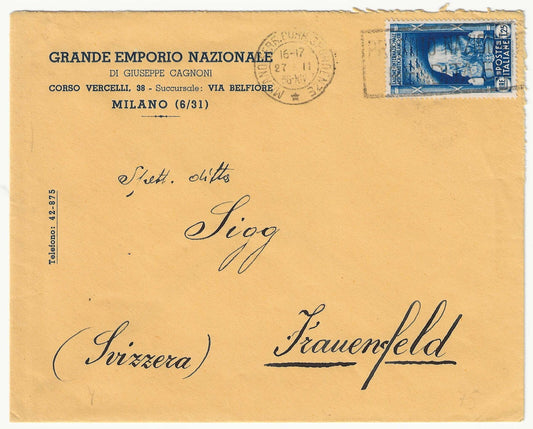 GRANDE EMPORIO NAZIONALE
DI GIUSEPPE CAGNONI
CORSO VERCELLI, 38 - Succursale: VIA BELFIORE
MILANO (6/31)
16-17
27 II
POSTE
ITALIANE
Telefono: 42-875
Spett. ditta
Sigg
Frauenfeld
(Svizzera)